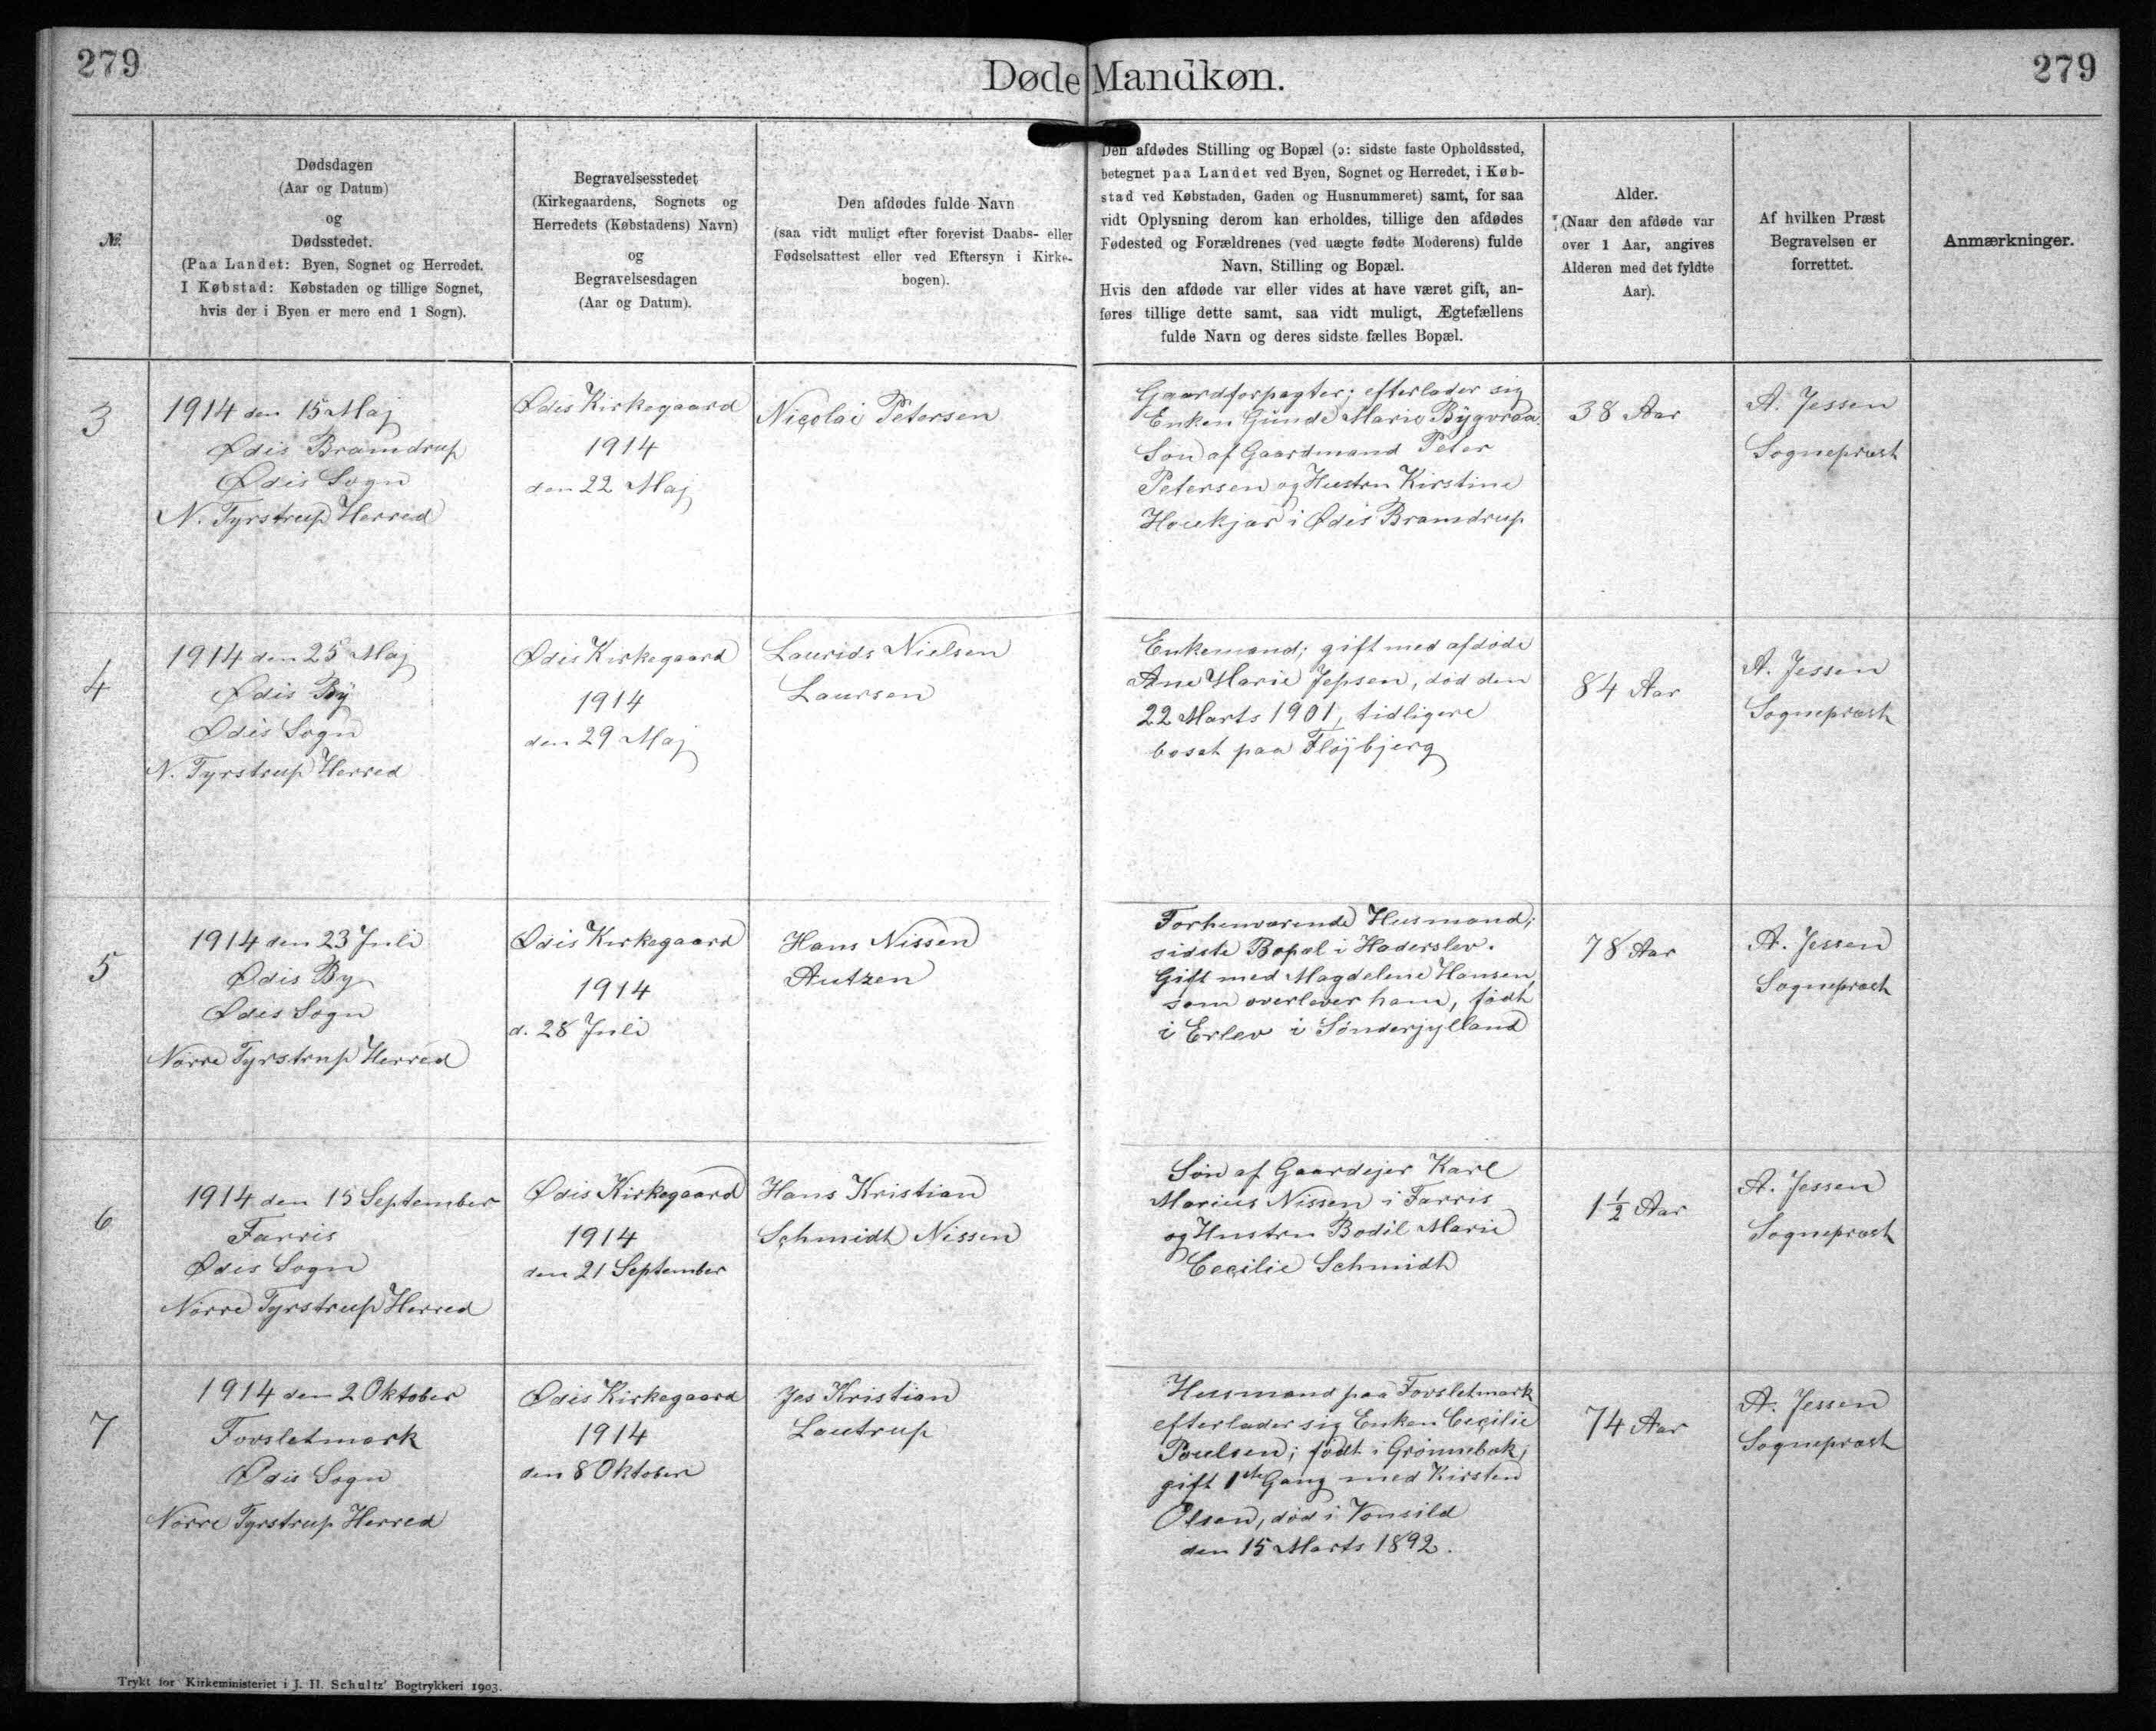 279
Døde Mandkøn.
279
№.
Dødsdagen
(Aar og Datum)
og
Dødsstedet.
(Paa Landet: Byen, Sognet og Herredet.
I Købstad: Købstaden og tillige Sognet,
hvis der i Byen er mere end 1 Sogn).
Begravelsesstedet
(Kirkegaardens, Sognets og
Herredets (Købstadens) Navn)
og
Begravelsesdagen
(Aar og Datum).
Den afdødes fulde Navn
(saa vidt muligt efter forevist Daabs- eller
Fødselsattest eller ved Eftersyn i Kirke-
bogen).
Den afdødes Stilling og Bopæl (ɔ: sidste faste Opholdssted,
betegnet paa Landet ved Byen, Sognet og Herredet, i Køb-
stad ved Købstaden, Gaden og Husnummeret) samt, for saa
vidt Oplysning derom kan erholdes, tillige den afdødes
Fødested og Forældrenes (ved uægte fødte Moderens) fulde
Navn, Stilling og Bopæl.
Hvis den afdøde var eller vides at have været gift, an-
føres tillige dette samt, saa vidt muligt, Ægtefællens
fulde Navn og deres sidste fælles Bopæl.
Alder.
(Naar den afdøde var
over 1 Aar, angives
Alderen med det fyldte
Aar).
Af hvilken Præst
Begravelsen er
forrettet.
Anmærkninger.
3
1914 den 15 Maj
Ødis Bramdrup
Ødis Sogn
N. Tyrstrup Herred
Ødis Kirkegaard
1914
den 22 Maj
Nicolai Petersen
Gaardforpagter; efterlader sig
Enken Gunde Marie Bygvraa.
Søn af Gaardmand Peter
Petersen og Hustru Kirstine
Houkjær i Ødis Bramdrup
38 Aar
A. Jessen
Sognepræst
4
1914 den 25 Maj
Ødis By
Ødis Sogn
N. Tyrstrup Herred
Ødis Kirkegaard
1914
den 29 Maj
Laurids Nielsen
Laursen
Enkemand; gift med afdøde
Ane Marie Jepsen, død den
22 Marts 1901, tidligere
bosat paa Fløjbjerg
84 Aar
A. Jessen
Sognepræst
5
1914 den 23 Juli
Ødis By
Ødis Sogn
Nørre Tyrstrup Herred
Ødis Kirkegaard
1914
d. 28 Juli
Hans Nissen
Autzen
Forhenværende Husmand;
sidste Bopæl i Haderslev.
Gift med Magdelene Hansen,
som overlever ham, født
i Erlev i Sønderjylland
78 Aar
A. Jessen
Sognepræst
6
1914 den 15 September
Farris
Ødis Sogn
Nørre Tyrstrup Herred
Ødis Kirkegaard
1914
den 21 September
Hans Kristian
Schmidt Nissen
Søn af Gaardejer Karl
Marius Nissen i Farris
og Hustru Bodil Marie
Cecilie Schmidt
1 1/2 Aar
A. Jessen
Sognepræst
7
1914 den 2 Oktober
Fovsletmark
Ødis Sogn
Nørre Tyrstrup Herred
Ødis Kirkegaard
1914
den 8 Oktober
Jes Kristian
Lautrup
Husmand paa Fovsletmark
efterlader sig Enken Cecilie
Poulsen; født i Grønnebæk;
gift 1ste Gang med Kirsten
Olsen, død i Vonsild
den 15 Marts 1892.
74 Aar
A. Jessen
Sognepræst
Trykt for Kirkeministeriet i J. H. Schultz' Bogtrykkeri 1903.